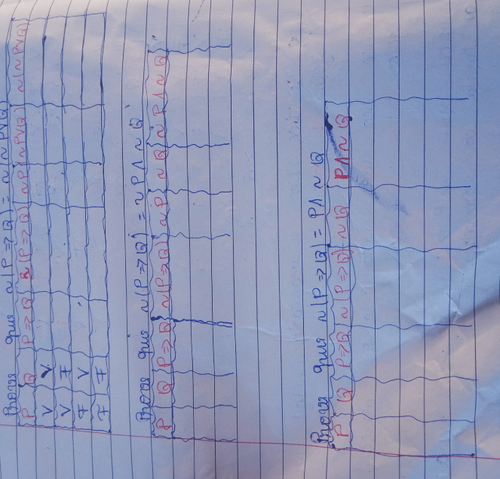 Prove que ~(P⇒Q) = ~(~PVQ)
P Q P⇒Q ~(P⇒Q) ~P ~PVQ ~(~PVQ)
V V
V F
F V
F F
Prove que ~(P⇒Q) = ~P∧~Q
P Q P⇒Q ~(P⇒Q) ~P ~Q ~P∧~Q
Prove que ~(P⇒Q) = P∧~Q
P Q P⇒Q ~(P⇒Q) ~Q P∧~Q